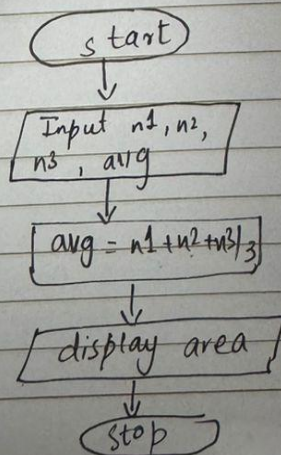 start
Input n1, n2,
n3, avg
avg = n1+n2+n3/3
display area
stop